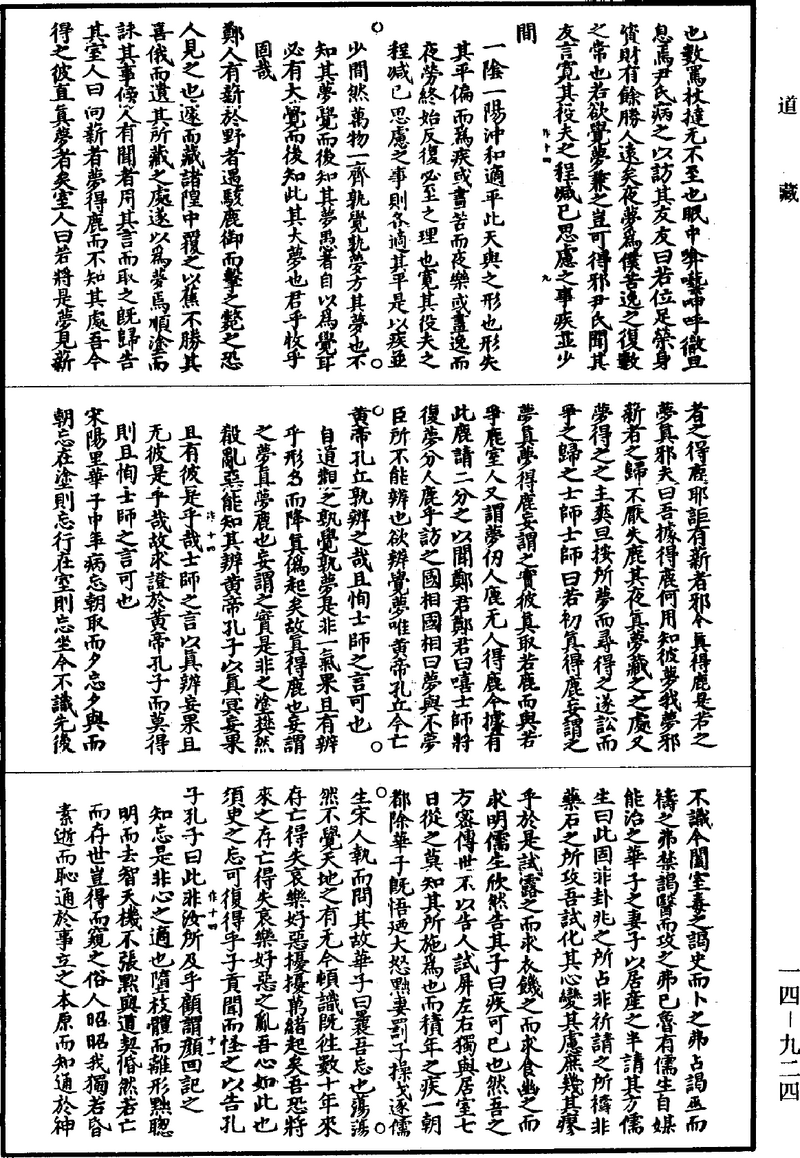 道藏
也數罵杖撻无不至也眠中啽囈呻呼徹旦
息焉尹氏病之以訪其友友曰若位足榮身
資財有餘勝人遠矣夜夢為僕苦逸之復數
之常也若欲覺夢兼之豈可得邪尹氏聞其
友言寬其役夫之程減已思慮之事疾並少
作十四
九
間
一陰一陽沖和適平此天與之形也形失
其平偏而為疾或晝苦而夜樂或晝逸而
夜勞終始反復必至之理也寬其役夫之
程減已思慮之事則各適其平是以疾並
少間然萬物一齊孰覺孰夢方其夢也不
知其夢覺而後知其夢愚者自以為覺耳
必有大覺而後知此其大夢也君乎牧乎
固哉
鄭人有薪於野者遇駭鹿御而擊之斃之恐
人見之也遽而藏諸隍中覆之以蕉不勝其
喜俄而遺其所藏之處遂以為夢焉順塗而
詠其事傍人有聞者用其言而取之既歸告
其室人曰向薪者夢得鹿而不知其處吾今
得之彼直真夢者矣室人曰若將是夢見薪
者之得鹿耶詎有薪者邪今真得鹿是若之
夢真邪夫曰吾據得鹿何用知彼夢我夢邪
薪者之歸不厭失鹿其夜真夢藏之之處又
夢得之之主爽旦按所夢而尋得之遂訟而
爭之歸之士師士師曰若初真得鹿妄謂之
夢真夢得鹿妄謂之實彼真取若鹿而與若
爭鹿室人又謂夢仞人鹿无人得鹿今據有
此鹿請二分之以聞鄭君鄭君曰嘻士師將
復夢分人鹿乎訪之國相國相曰夢與不夢
臣所不能辨也欲辨覺夢唯黃帝孔丘今亡
黃帝孔丘孰辨之哉且恂士師之言可也
自道觀之孰覺孰夢是非一氣果且有辨
乎形名而降真偽起矣故真得鹿也妄謂
之夢真夢鹿也妄謂之實是非之塗樊然
殽亂惡能知其辨黃帝孔子以真冥妄果
且有彼是乎哉士師之言以真辨妄果且
作十四
十
无彼是乎哉故求證於黃帝孔子而莫得
則且恂士師之言可也
宋陽里華子中年病忘朝取而夕忘夕與而
朝忘在塗則忘行在室則忘坐今不識先後
不識今闔室毒之謁史而卜之弗占謁巫而
禱之弗禁謁醫而攻之弗已魯有儒生自媒
能治之華子之妻子以居產之半請其方儒
生曰此固非卦兆之所占非祈請之所禱非
藥石之所攻吾試化其心變其慮庶幾其瘳
乎於是試露之而求衣饑之而求食幽之而
求明儒生欣然告其子曰疾可已也然吾之
方密傳世不以告人試屏左右獨與居室七
日從之莫知其所施為也而積年之疾一朝
都除華子既悟迺大怒黜妻罰子操戈逐儒
生宋人執而問其故華子曰曩吾忘也蕩蕩
然不覺天地之有无今頓識既往數十年來
存亡得失哀樂好惡擾擾萬緒起矣吾恐將
來之存亡得失哀樂好惡之亂吾心如此也
須臾之忘可復得乎子貢聞而怪之以告孔
作十四
十一
子孔子曰此非汝所及乎顧謂顏回記之
知忘是非心之適也墮枝體而離形黜聰
明而去智天機不張默與道契惛然若亡
而存世豈得而窺之俗人昭昭我獨若昏
素逝而恥通於事立之本原而知通於神
一四－九二四